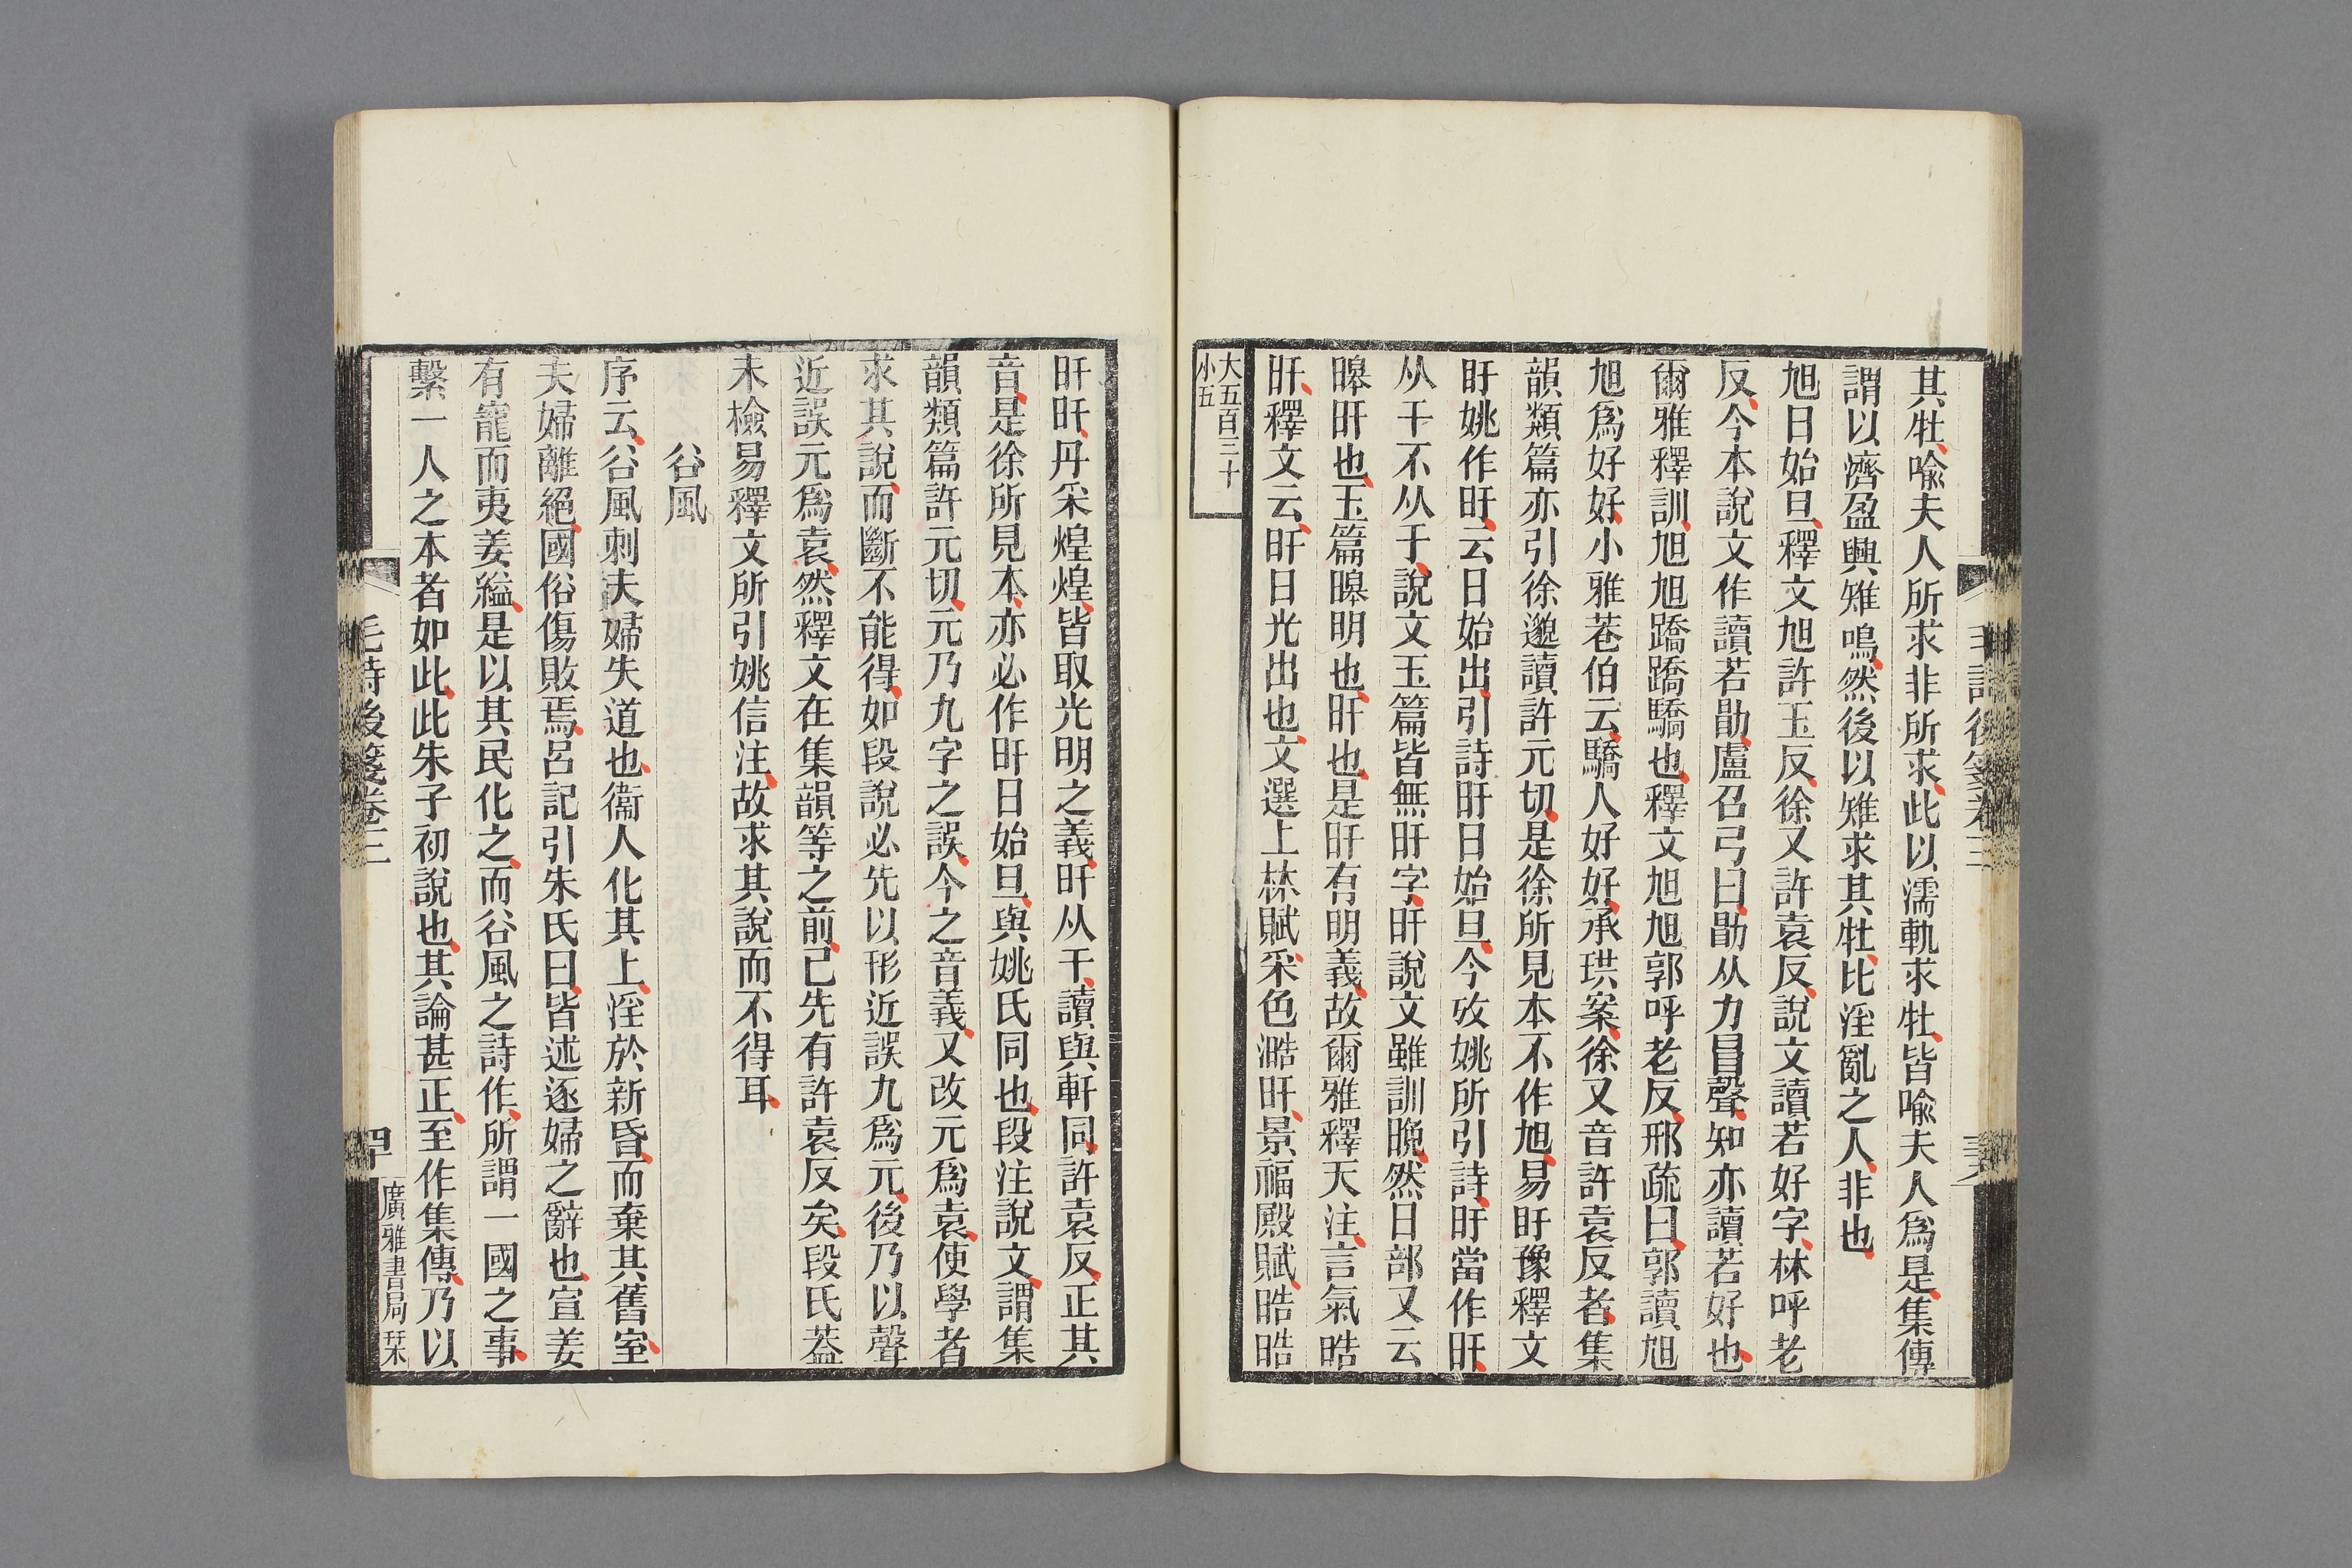 其牡喩夫人所求非所求此以濡軌求牡皆喩夫人爲是集傳
謂以濟盈興雉鳴然後以雉求其牡比淫亂之人非也
旭日始旦釋文旭許玉反徐又許袁反說文讀若好字林呼老
反今本說文作讀若勖盧召弓曰勖从力冒聲知亦讀若好也
爾雅釋訓旭旭蹻蹻驕也釋文旭旭郭呼老反邢疏曰郭讀旭
旭爲好好小雅巷伯云驕人好好承珙案徐又音許袁反者集
韻類篇亦引徐邈讀許元切是徐所見本不作旭易盱豫釋文
盱姚作旴云日始出引詩旴日始旦今攷姚所引詩旴當作旰
从干不从于說文玉篇皆無旴字旰說文雖訓晚然日部又云
暤旰也玉篇暤明也旰也是旰有明義故爾雅釋天注言氣晧
旰釋文云旰日光出也文選上林賦采色澔旰景福殿賦晧晧
大五百三十
小五
旰旰丹采煌煌皆取光明之義旰从干讀與軒同許袁反正其
音是徐所見本亦必作旰日始旦與姚氏同也段注說文謂集
韻類篇許元切元乃九字之誤今之音義又改元爲袁使學者
求其說而斷不能得如段說必先以形近誤九爲元後乃以聲
近誤元爲袁然釋文在集韻等之前已先有許袁反矣段氏葢
未檢易釋文所引姚信注故求其說而不得耳
谷風
序云谷風刺夫婦失道也衞人化其上淫於新昏而棄其舊室
夫婦離絕國俗傷敗焉呂記引朱氏曰皆述逐婦之辭也宣姜
有寵而夷姜縊是以其民化之而谷風之詩作所謂一國之事
繫一人之本者如此此朱子初說也其論甚正至作集傳乃以
毛詩後箋卷三
四
廣雅書局栞